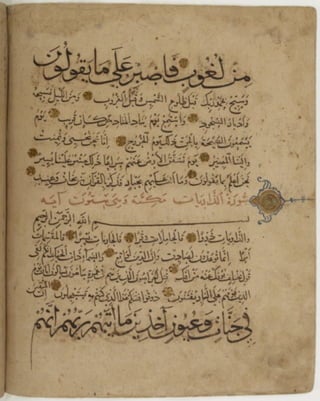 من لغوب فاصبر على ما يقولون
وسبح بحمد ربك قبل طلوع الشمس وقبل الغروب ومن الليل فسبحه
وادبار السجود واستمع يوم يناد المناد من مكان قريب يوم
يسمعون الصيحة بالحق ذلك يوم الخروج انا نحن نحيي ونميت
والينا المصير يوم تشقق الارض عنهم سراعا ذلك حشر علينا يسير
نحن اعلم بما يقولون وما انت عليهم بجبار فذكر بالقران من يخاف وعيد
سورة الذاريات مكية وهي ستون آية
بسم الله الرحمن الرحيم
والذاريات ذروا فالحاملات وقرا فالجاريات يسرا فالمقسمات
امرا انما توعدون لصادق وان الدين لواقع والسماء ذات الحبك انكم لفي
قول مختلف يؤفك عنه من افك قتل الخراصون الذين هم في غمرة ساهون يسألون ايان يوم
الدين يوم هم على النار يفتنون ذوقوا فتنتكم هذا الذي كنتم به تستعجلون ان المتقين
في جنات وعيون آخذين ما آتيهم ربهم انهم